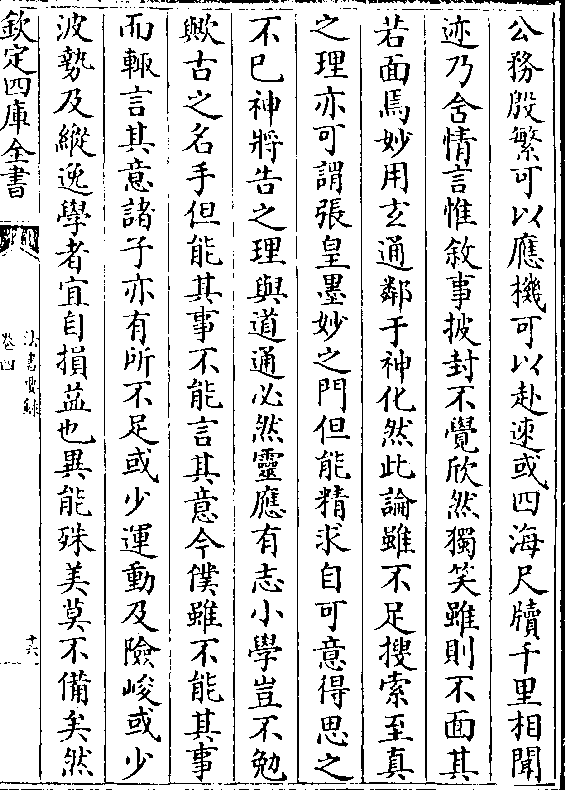 公務殷繁可以應機可以赴速或四海尺牘千里相聞
迹乃含情言惟敘事披封不覺欣然獨笑雖則不面其
若面焉妙用玄通鄰于神化然此論雖不足搜索至真
之理亦可謂張皇墨妙之門但能精求自可意得思之
不已神將告之理與道通必然靈應有志小學豈不勉
歟古之名手但能其事不能言其意今僕雖不能其事
而輙言其意諸子亦有所不足或少運動及險峻或少
波勢及縱逸學者宜自損益也異能殊美莫不備矣然
欽定四庫全書
法書要録
卷四
十六